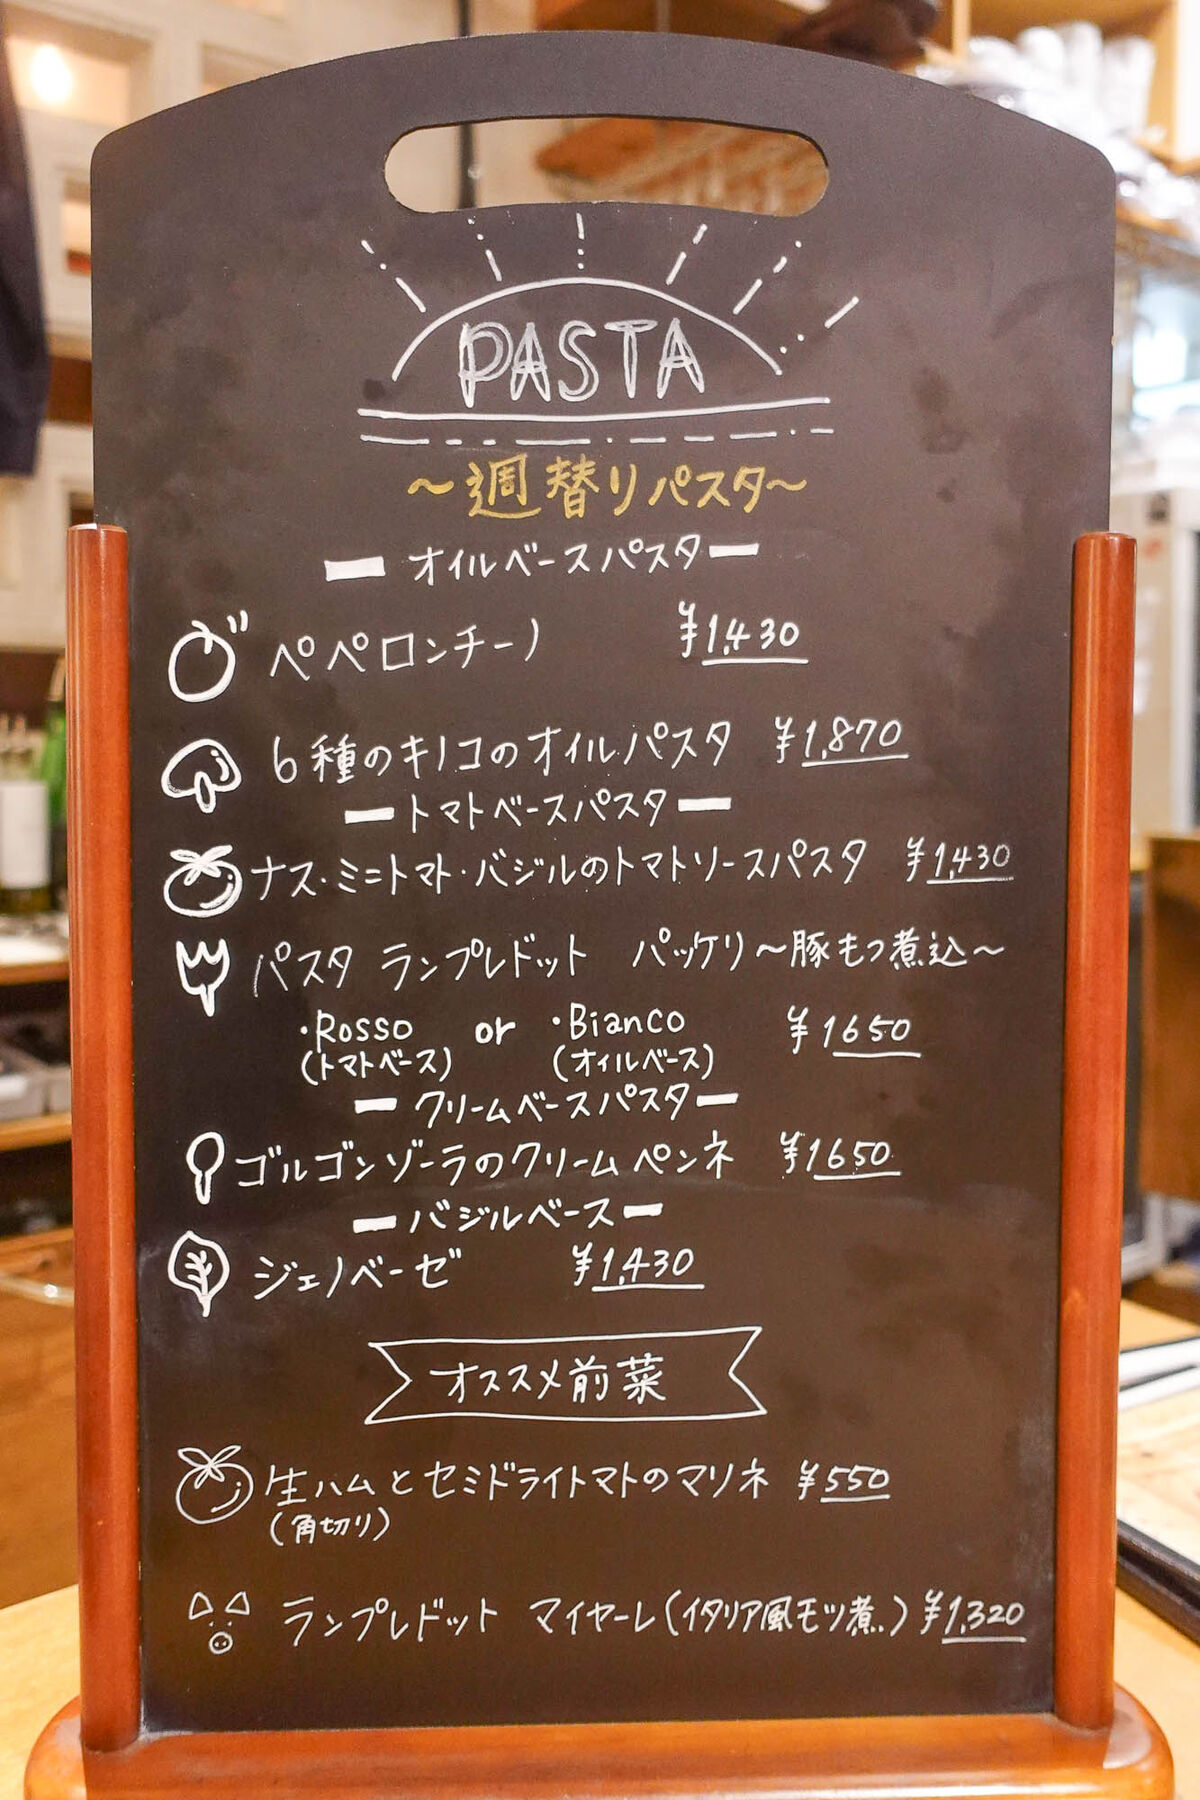 PASTA
～週替りパスタ～
オイルベースパスタ
ペペロンチーノ ¥1,430
6種のキノコのオイルパスタ ¥1,870
トマトベースパスタ
ナス・ミニトマト・バジルのトマトソースパスタ ¥1,430
パスタ ランプレドット パッケリ～豚もつ煮込～
・Rosso or ・Bianco ¥1650
(トマトベース) (オイルベース)
クリームベースパスタ
ゴルゴンゾーラのクリームペンネ ¥1650
バジルベース
ジェノベーゼ ¥1,430
オススメ前菜
生ハムとセミドライトマトのマリネ ¥550
(角切り)
ランプレドット マイヤーレ(イタリア風モツ煮) ¥1,320